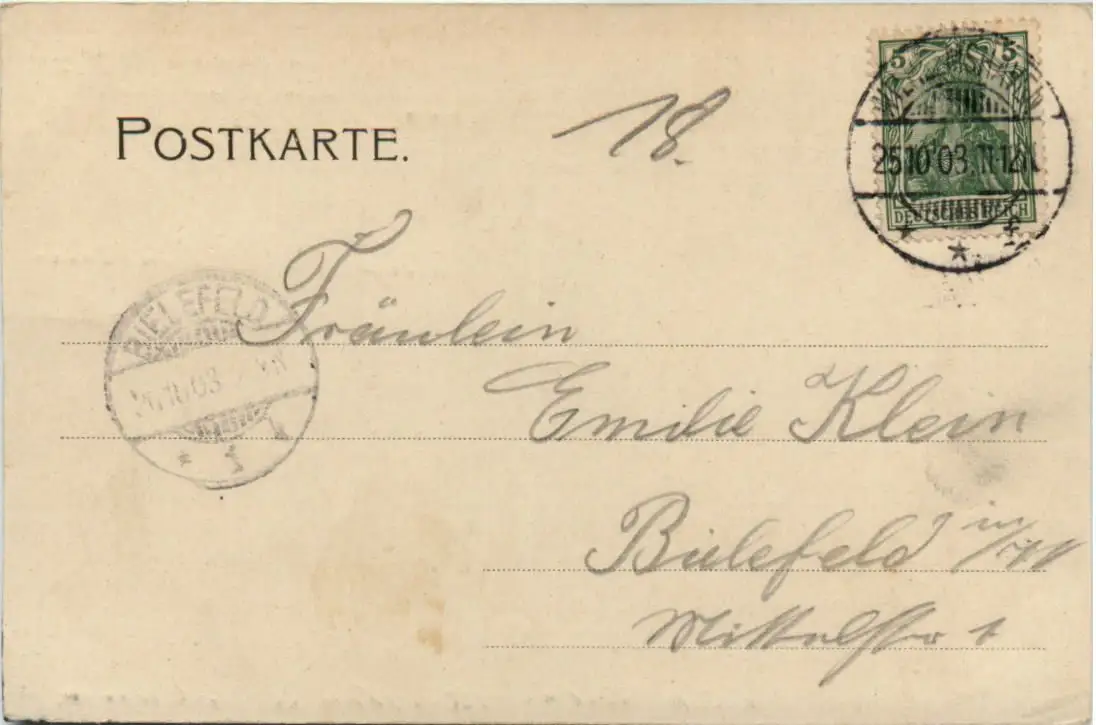 POSTKARTE.
18.
5 5
WILHELMSHAVEN
25.10.03.11-12V.
DEUTSCHES REICH
BIELEFELD
.10.03
* 1
Fräulein
Emilie Klein
Bielefeld in/W
Mittelstr 1